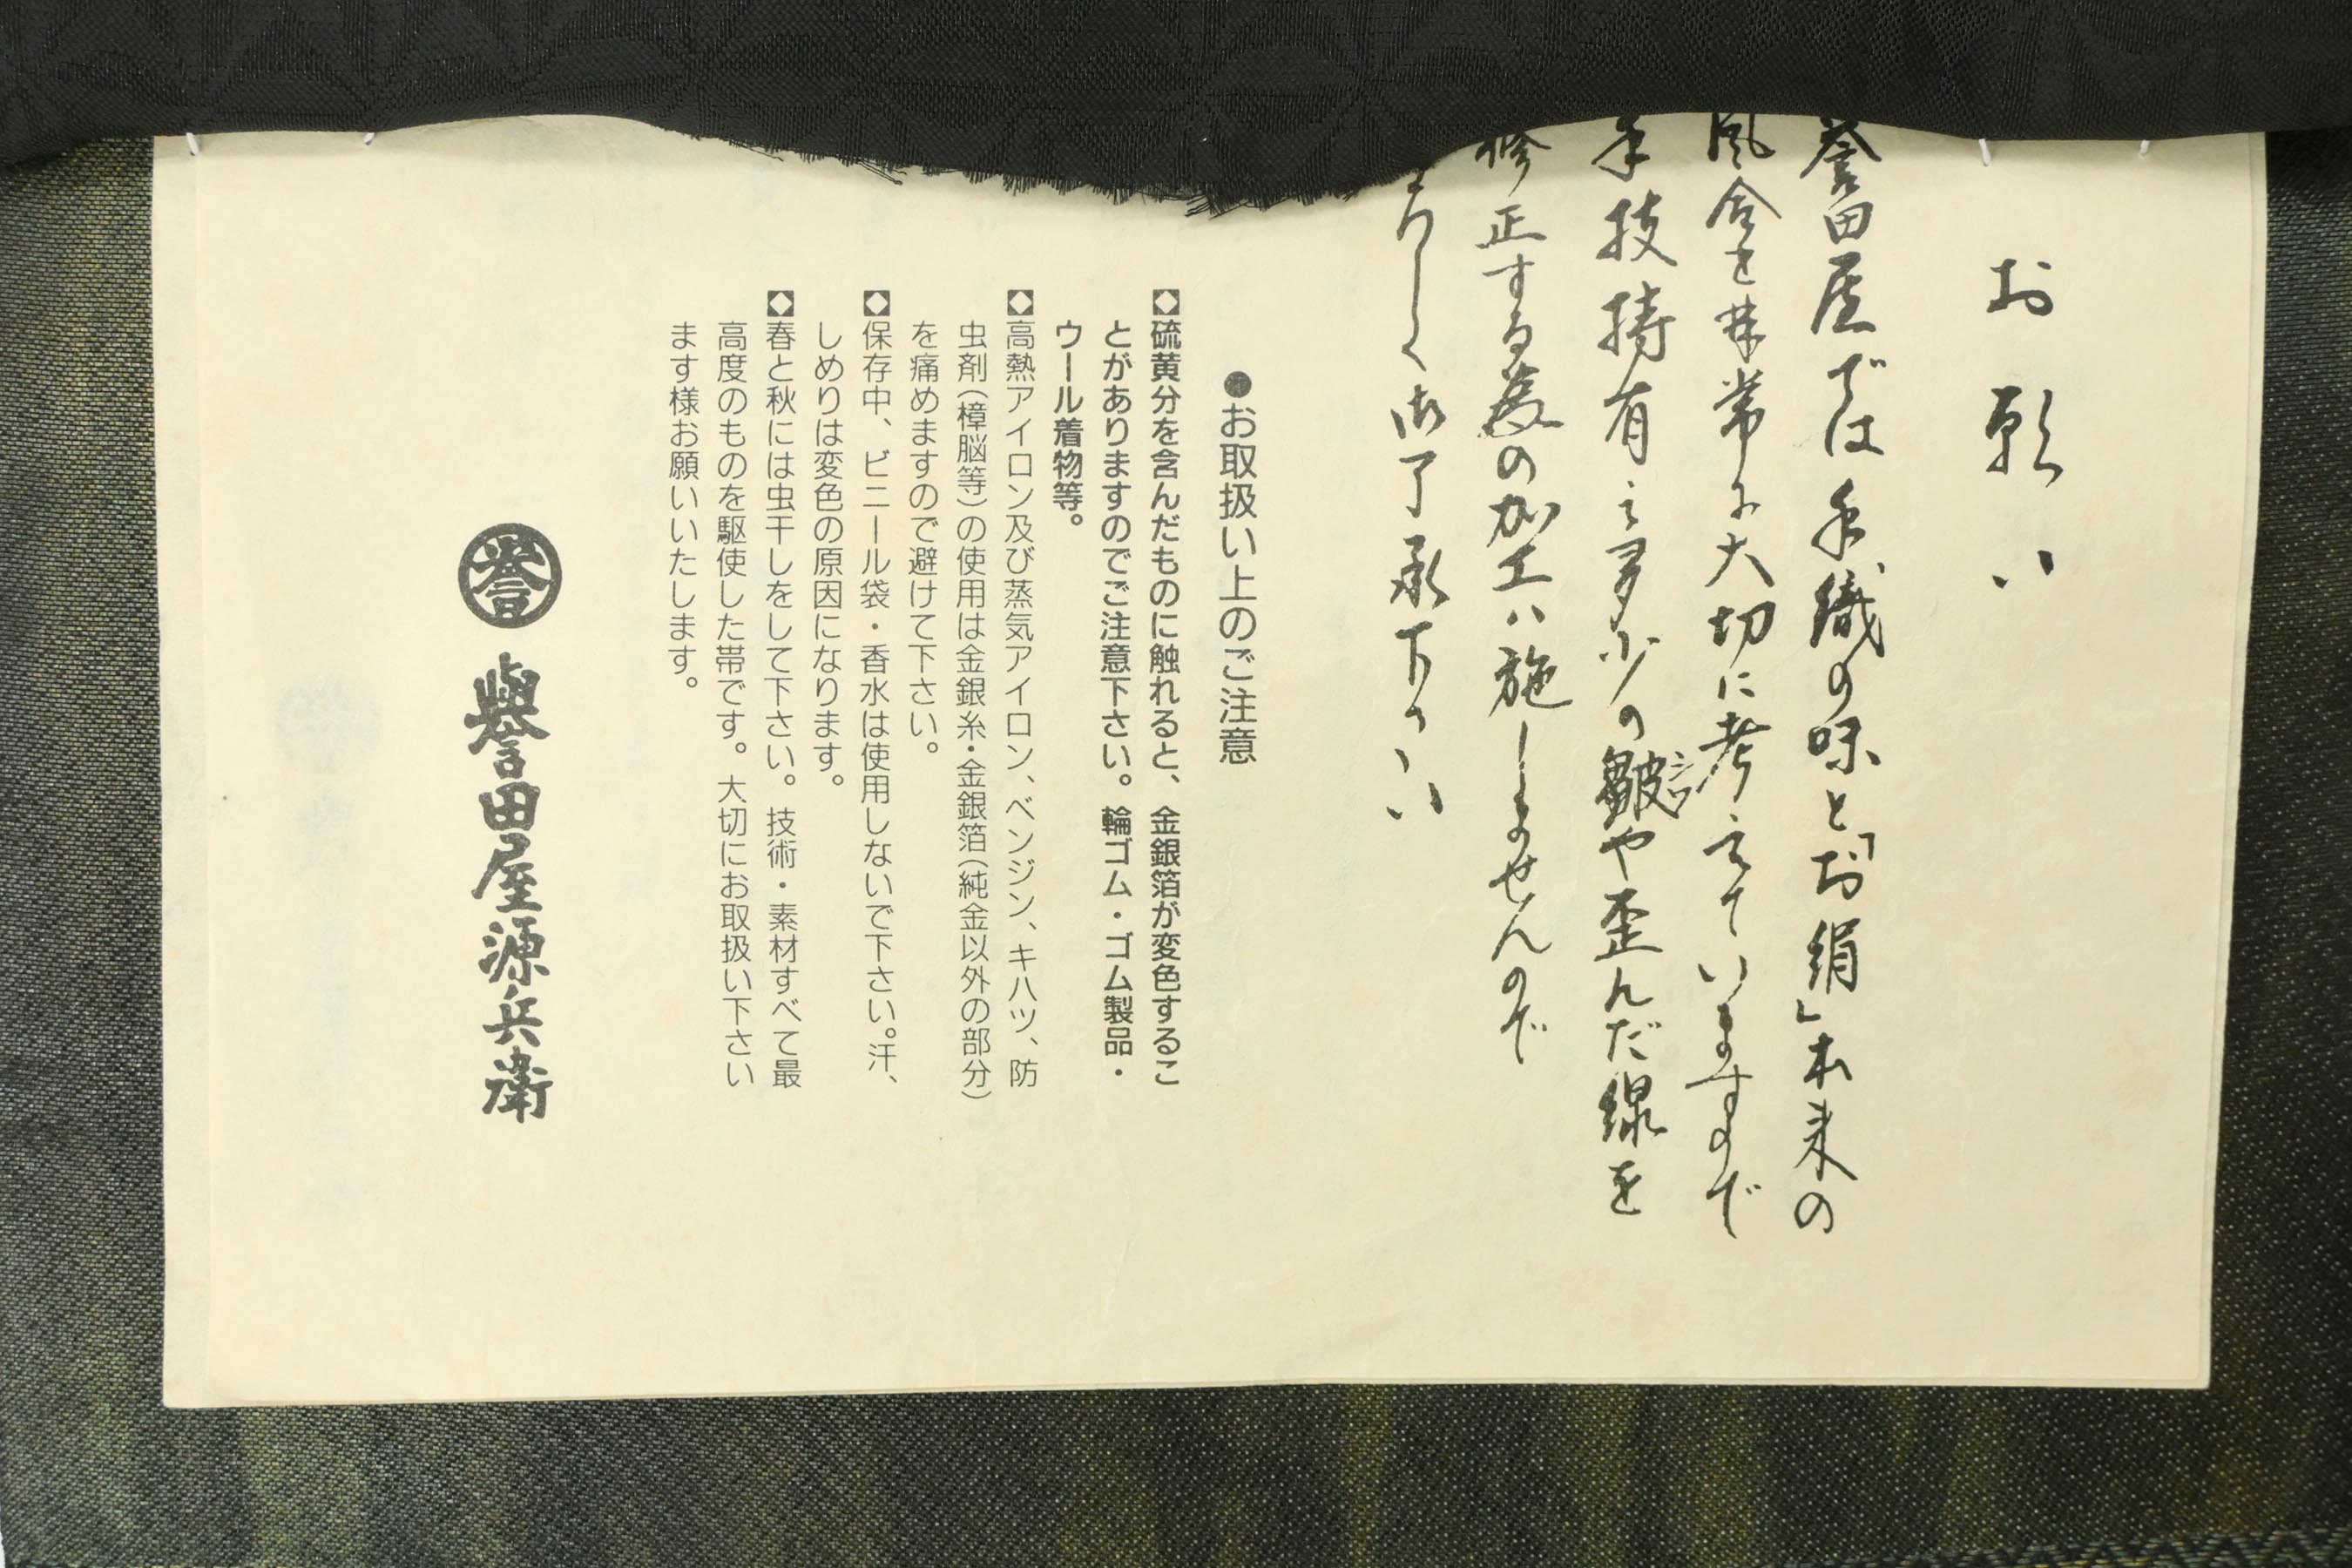 お願い
誉田屋では手織の味と「お絹」本来の
風合を非常に大切に考えていますので
手技持有之多少の皺や歪んだ線を
シワ
修正する為の加工ハ施しませんので
よろしく御了承下さい
●お取扱い上のご注意
◆硫黄分を含んだものに触れると、金銀箔が変色するこ
とがありますのでご注意下さい。輪ゴム・ゴム製品・
ウール着物等。
◆高熱アイロン及び蒸気アイロン、ベンジン、キハツ、防
虫剤(樟脳等)の使用は金銀糸・金銀箔(純金以外の部分)
を痛めますので避けて下さい。
◆保存中、ビニール袋・香水は使用しないで下さい。汗、
しめりは変色の原因になります。
◆春と秋には虫干しをして下さい。技術・素材すべて最
高度のものを駆使した帯です。大切にお取扱い下さい
ます様お願いいたします。
誉
譽田屋源兵衛